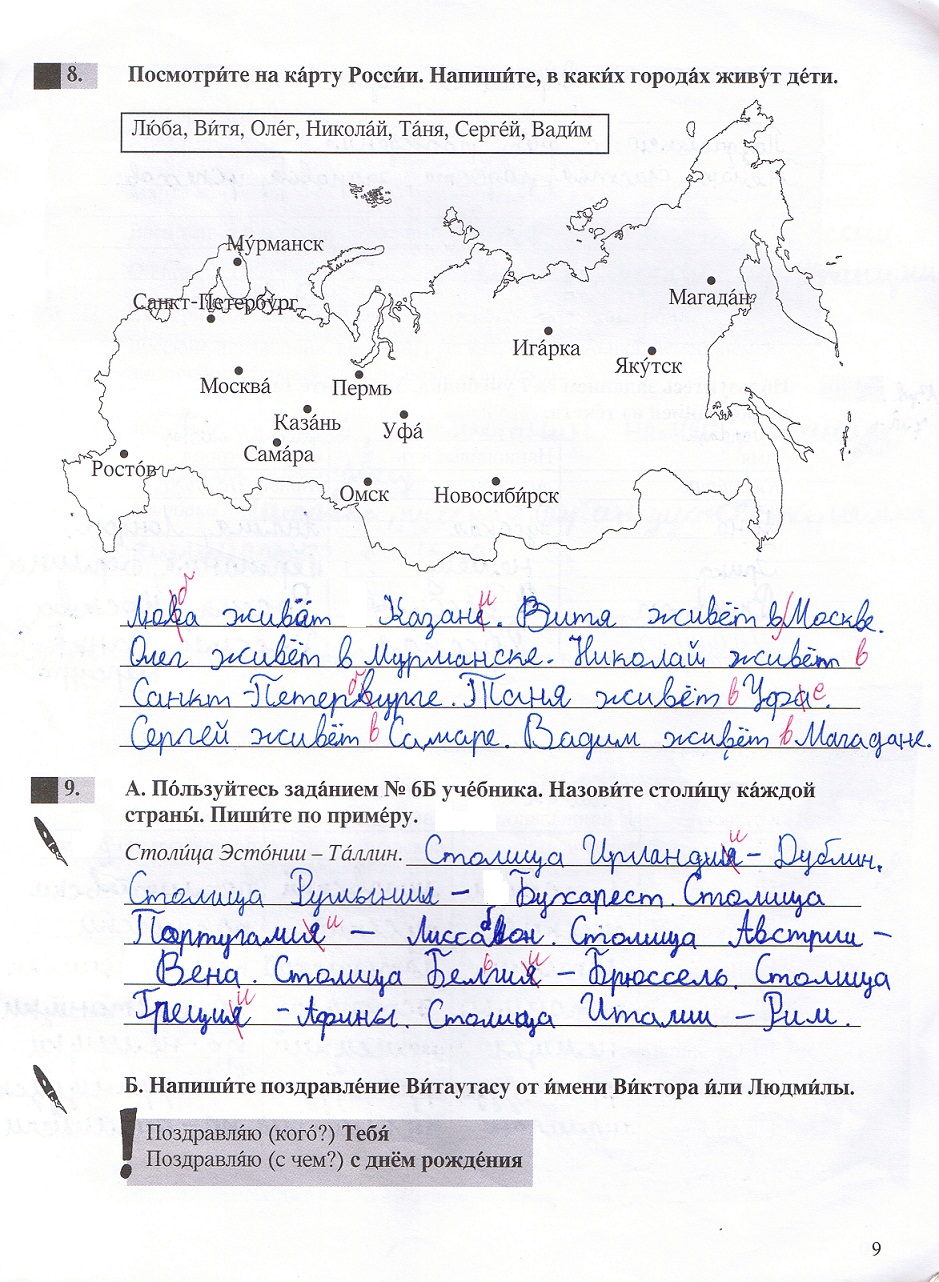 8. Посмотри́те на ка́рту Росси́и. Напиши́те, в каки́х города́х живу́т де́ти.
Лю́ба, Ви́тя, Оле́г, Никола́й, Та́ня, Серге́й, Вади́м
Му́рманск
Санкт-Петербу́рг
Магада́н
Ига́рка
Яку́тск
Москва́
Пермь
Каза́нь
Уфа́
Сама́ра
Росто́в
Омск
Новосиби́рск
б и
живёт Витя живёт в Москве.
Олег живёт в Мурманске. Николай живёт в
б
Санкт-Петербурге. Таня живёт в Уфе.
Сергей живёт в Самаре. Вадим живёт в Магадане.
9. А. По́льзуйтесь зада́нием № 6Б уче́бника. Назови́те столи́цу ка́ждой
страны́. Пиши́те по приме́ру.
и
Столи́ца Эсто́нии – Та́ллин. Столица Ирландия – Дублин.
Столица Румынии – Бухарест. Столица
Португалия и – Лиссабон. Столица Австрии –
ь и
Вена. Столица Белгия – Брюссель. Столица
и
Греция – Афины. Столица Италии – Рим.
Б. Напиши́те поздравле́ние Ви́таутасу от и́мени Ви́ктора и́ли Людми́лы.
! Поздравля́ю (кого́?) Тебя́
Поздравля́ю (с чем?) с днём рожде́ния
9